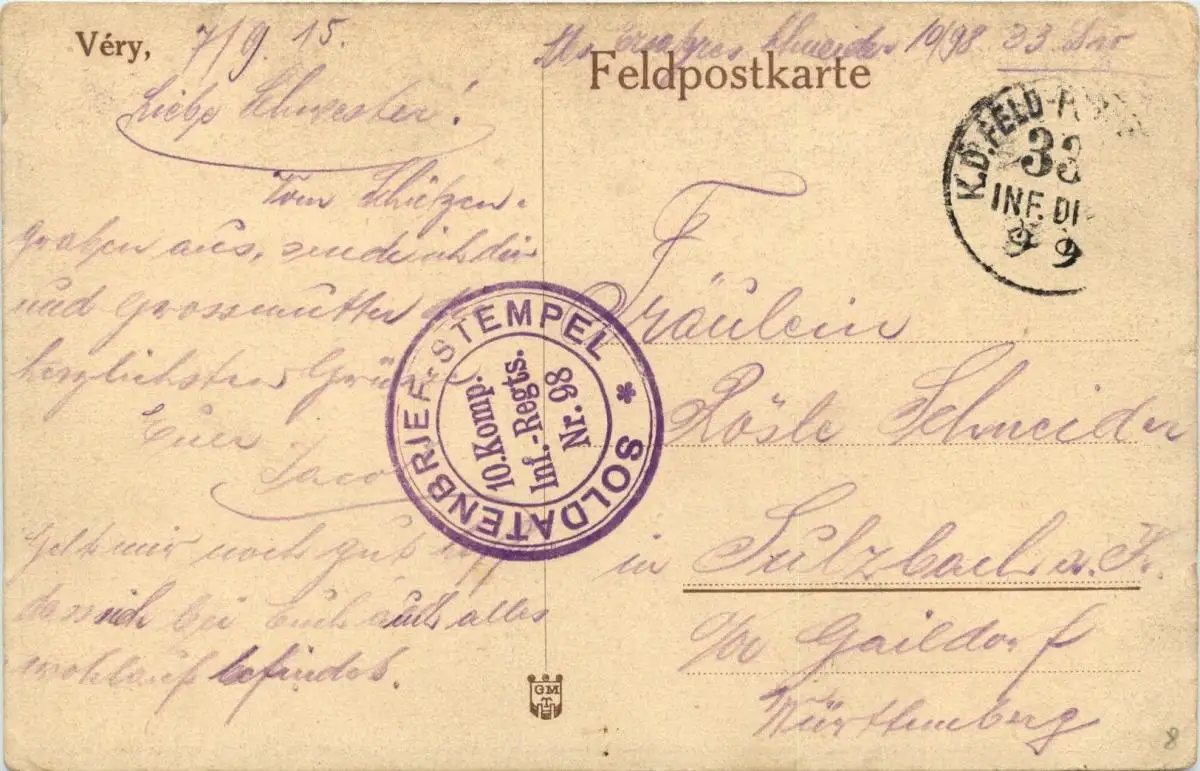 Véry, 7/9. 15.
Liebe Schwester!
Vom Schützen-
graben aus, sende ich dir
und Grossmutter die
herzlichsten Grüße
Euer
Jacob
Geht mir noch gut
dass sich bei Euch auch alles
wohlauf befindet.
Schneider 10/98 33
Feldpostkarte
K.D. FELD-P
33
INF. DI
9 9
SOLDATENBRIEF-STEMPEL *
10. Komp.
Inf.-Regts.
Nr. 98
Fräulein
Rösle Schneider
in Sulzbach a. K.
O/A Gaildorf
Württemberg
GM
T
8